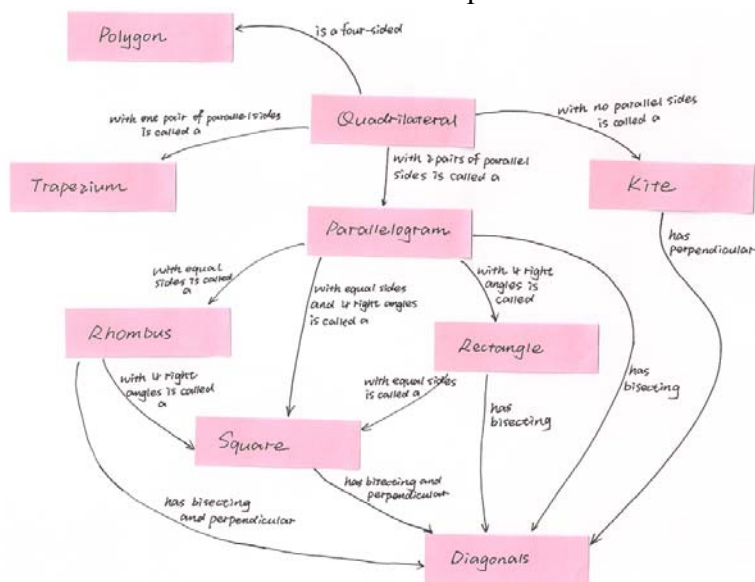 Polygon
is a four-sided
Quadrilateral
with one pair of parallel sides
is called a
with no parallel sides
is called a
Trapezium
with 2 pairs of parallel
sides is called a
Kite
Parallelogram
has
perpendicular
with equal
sides is called
a
with equal sides
and 4 right angles
is called a
with 4 right
angles is
called
Rhombus
Rectangle
has
bisecting
with 4 right
angles is called
a
with equal sides
is called a
has
bisecting
Square
has bisecting and
perpendicular
has bisecting
and perpendicular
Diagonals